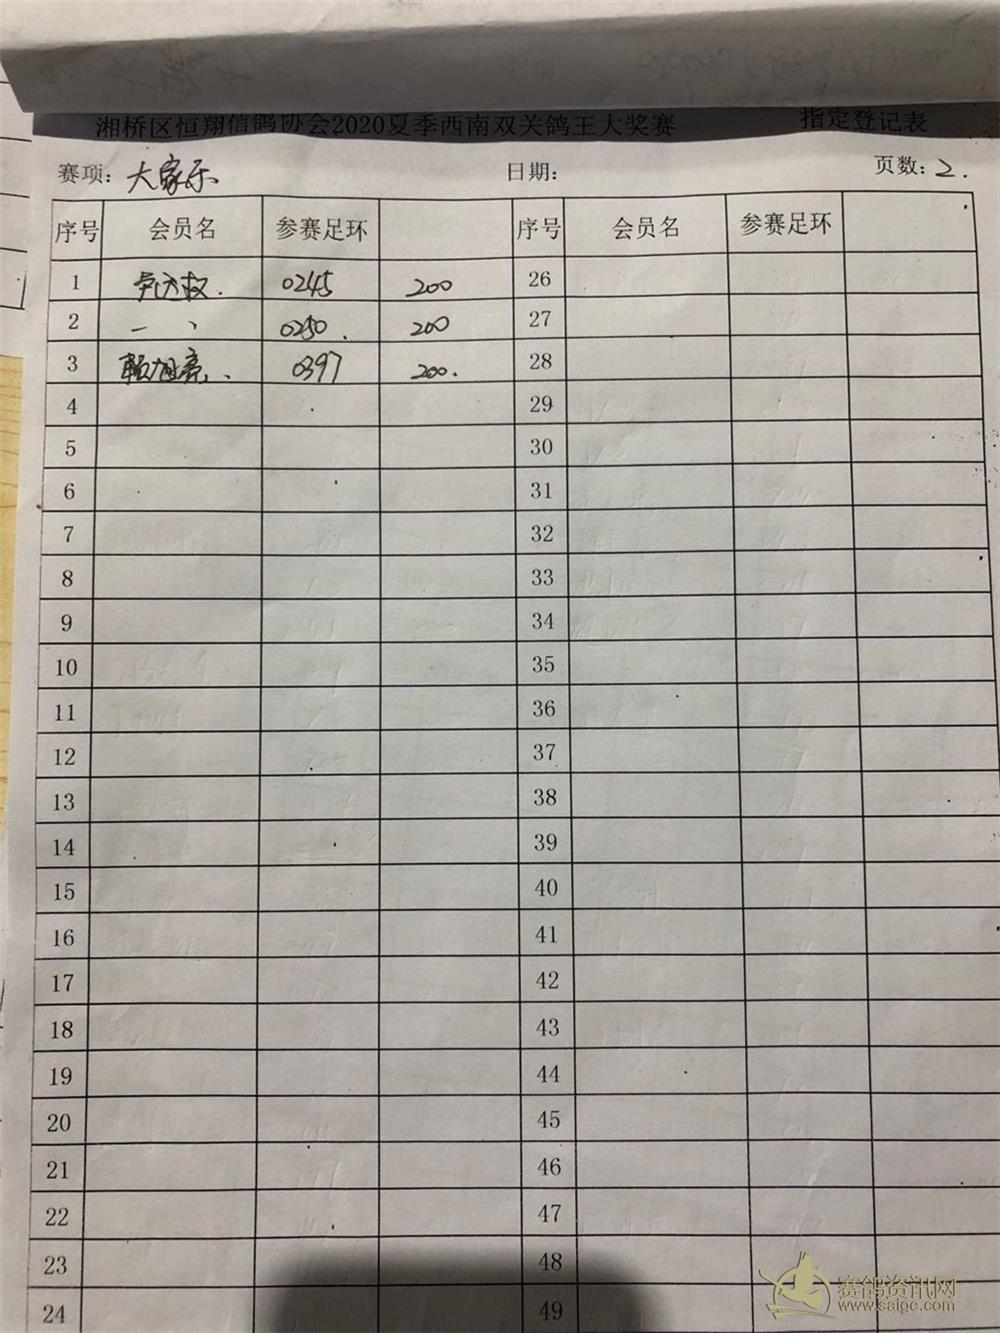 湘桥区恒翔信鸽协会2020夏季西南双关鸽王大奖赛 指定登记表
赛项: 大家乐 日期: 页数: 2.
序号 会员名 参赛足环 序号 会员名 参赛足环
1 卢达权. 0245 200 26
2 一、 0250. 200 27
3 赖旭亮、 0397 200. 28
4 29
5 30
6 31
7 32
8 33
9 34
10 35
11 36
12 37
13 38
14 39
15 40
16 41
17 42
18 43
19 44
20 45
21 46
22 47
23 48
24 49
赛鸽资讯网
www.saigc.com